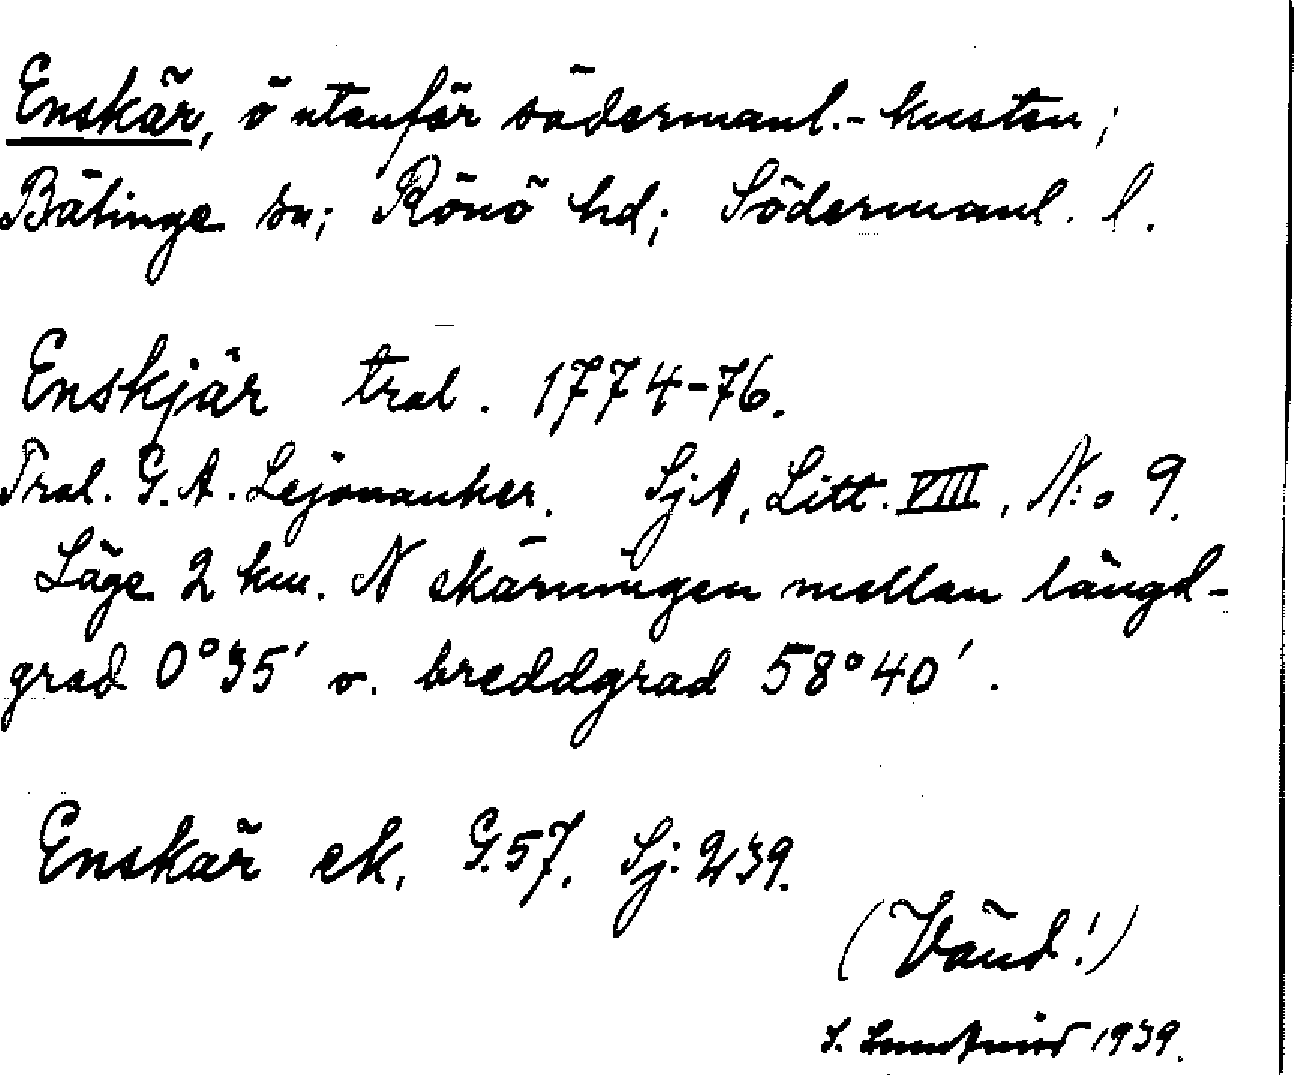 Enskär, ö utanför södermanl.-kusten;
Bälinge sn; Rönö hd; Södermanl. l.
Enskjär tral. 1774-76.
Tral. G. A. Lejonanker. SjA, Litt. VIII, N:o 9.
Läge 2 km. N skärningen mellan längd-
grad 0°35' o. breddgrad 58°40'.
Enskär ek. G.57. Sj: 239.
(Vänd!)
S. 1939.